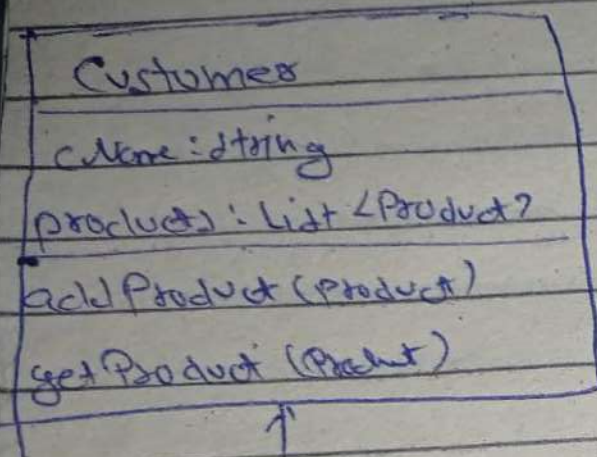 Customer
cName : string
products : List <Product>
addProduct (product)
getProduct (Product)